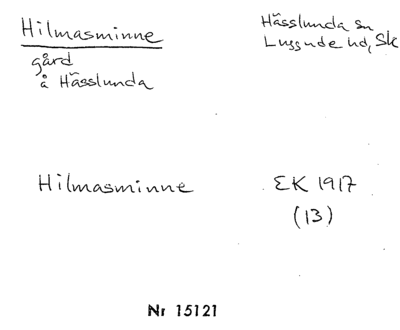 Hilmasminne
gård
å Hässlunda
Hässlunda sn
Luggude hd, Sk
Hilmasminne
EK 1917
(13)
Nr 15121